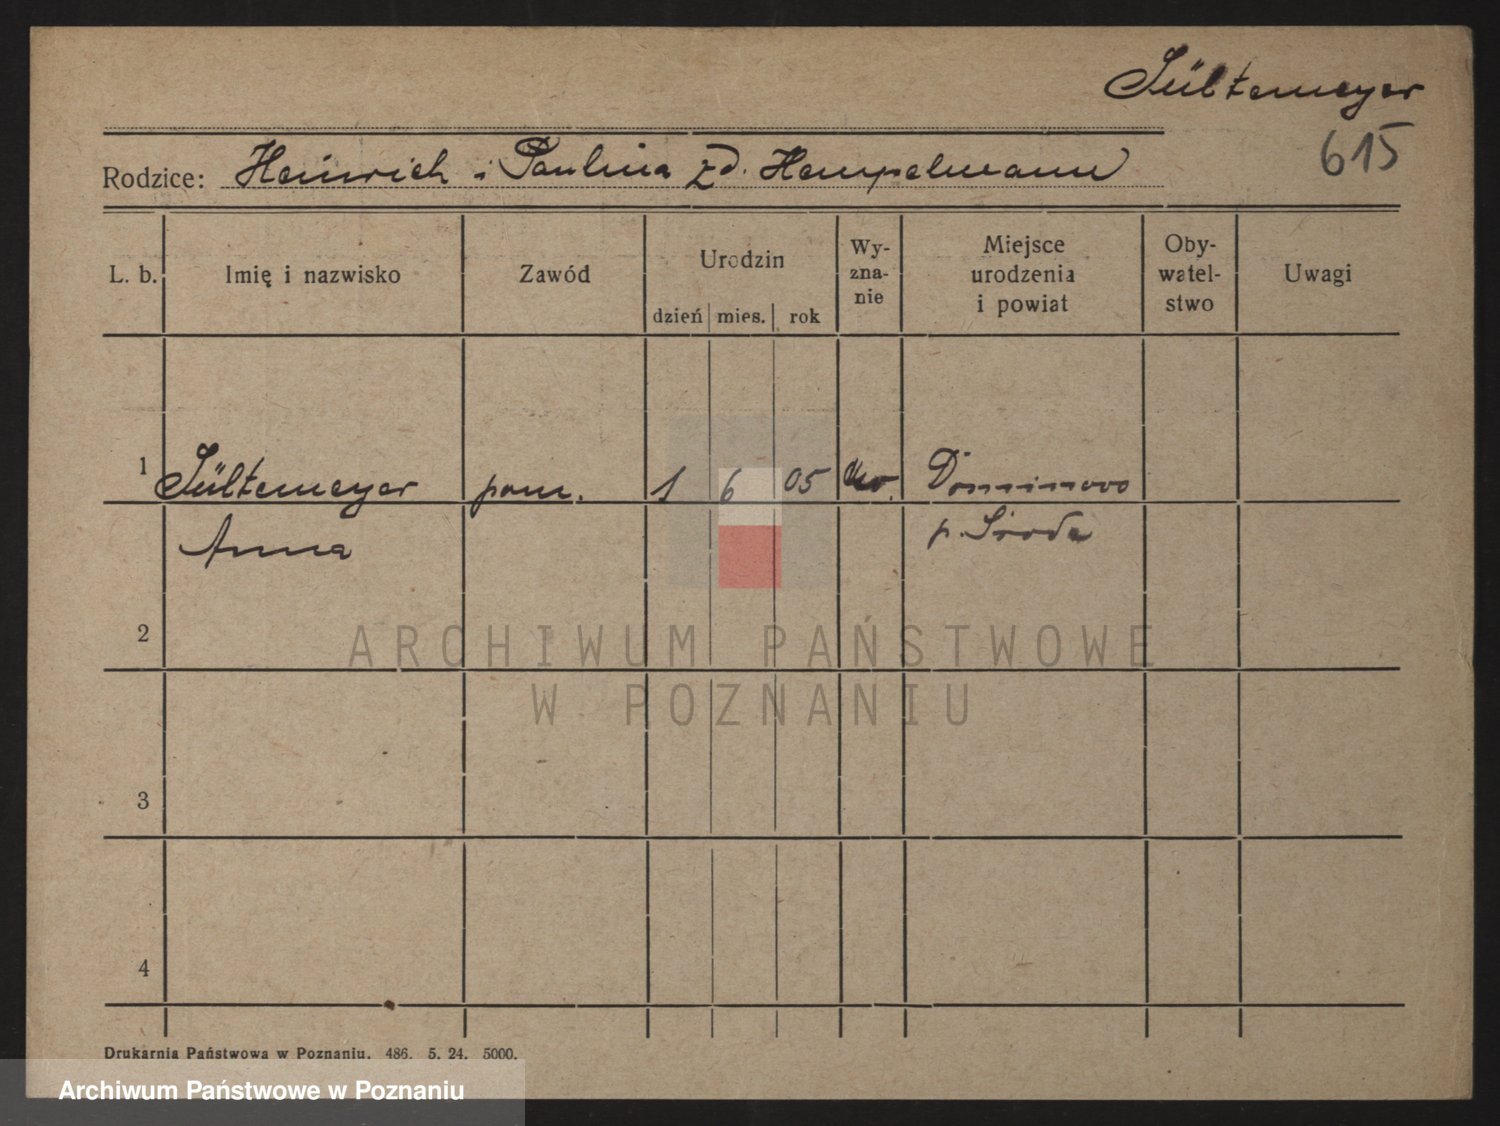 Sültemeyer
615
Rodzice: Heinrich i Paulina zd. Hempelmann
L. b. Imię i nazwisko Zawód Urodzin dzień mies. rok Wy-zna-nie Miejsce urodzenia i powiat Oby-watel-stwo Uwagi
1 Sültemeyer pom. 1 6 05 Dominowo
Anna p. Środa
2
ARCHIWUM PAŃSTWOWE
W POZNANIU
3
4
Drukarnia Państwowa w Poznaniu. 486. 5. 24. 5000.
Archiwum Państwowe w Poznaniu